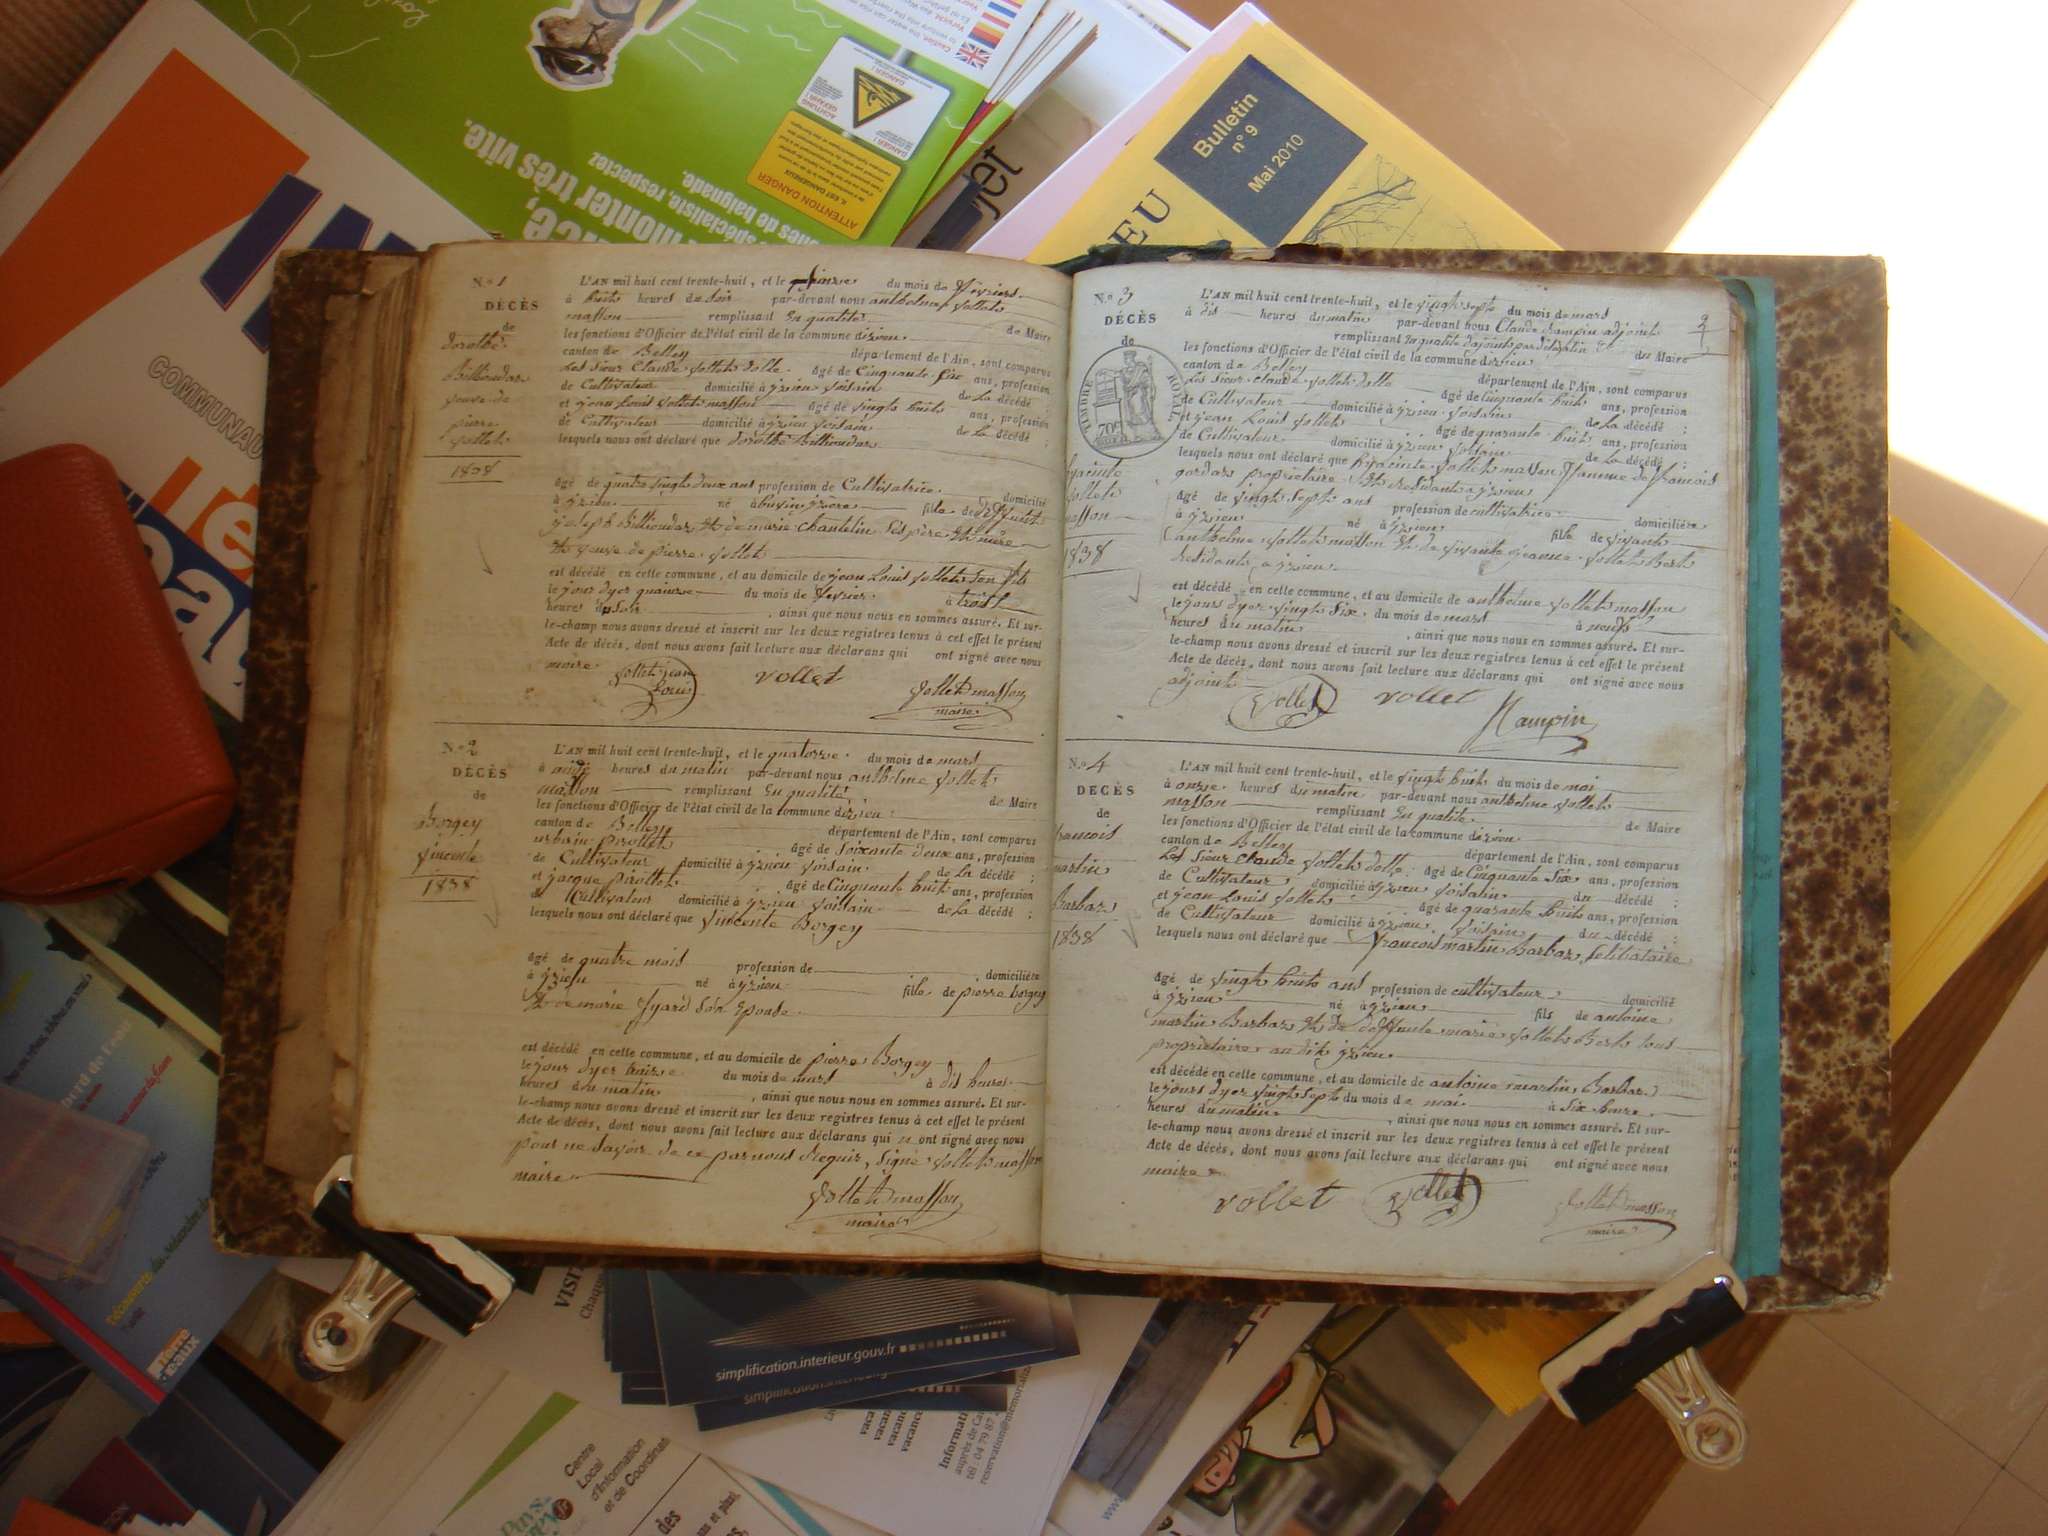 Bulletin
n° 9
Mai 2010
ATTENTION DANGER
monter très vite.
N.º 1
DÉCÈS
de
dorothé
Billioudar
veuve de
pierre
vollet
1838
L'AN mil huit cent trente-huit, et le quinze du mois de février
à huit heures du soir par-devant nous anthelme vollet
masson remplissant en qualité de Maire
les fonctions d'Officier de l'état civil de la commune dizieu
canton de Belley département de l'Ain, sont comparus
Les sieur Claude vollet dolle âgé de Cinquante six ans, profession
de Cultivateur domicilié à yzieu voisain de La décédé ;
et jean Louis vollet masson âgé de vingt huit ans, profession
de Cultivateur domicilié à yzieu voisain de La décédé ;
lesquels nous ont déclaré que dorothé Billioudar
âgé de quatre vingt deux ans profession de Cultivatrice domicilié
à yzieu né à fille de
joseph Billioudar et de marie chantelin ses père et mère
et veuve de pierre vollet
est décédé en cette commune, et au domicile de jean Louis vollet son fils
le jour dyer du mois de février à trois
heures du soir, ainsi que nous nous en sommes assuré. Et sur-
le-champ nous avons dressé et inscrit sur les deux registres tenus à cet effet le présent
Acte de décès, dont nous avons fait lecture aux déclarans qui ont signé avec nous
maire
vollet jean Louis vollet vollet masson
maire
N.º 2
DÉCÈS
de
Borgey
vincente
1838
L'AN mil huit cent trente-huit, et le quatorze du mois de mars
à midi heures du matin par-devant nous anthelme vollet
masson remplissant en qualité de Maire
les fonctions d'Officier de l'état civil de la commune dizieu
canton de Belley département de l'Ain, sont comparus
urbain pirollet âgé de soixante deux ans, profession
de Cultivateur domicilié à yzieu voisain de La décédé ;
et jacque pirollet âgé de Cinquante huit ans, profession
de Cultivateur domicilié à yzieu voisain de La décédé ;
lesquels nous ont déclaré que vincente Borgey
âgé de quatre mois profession de domiciliée
à yzieu né à yzieu fille de pierre borgey
et de marie son Epouse
est décédé en cette commune, et au domicile de pierre Borgey
le jour dyer treize du mois de mars à dis heures
heures du matin, ainsi que nous nous en sommes assuré. Et sur-
le-champ nous avons dressé et inscrit sur les deux registres tenus à cet effet le présent
Acte de décès, dont nous avons fait lecture aux déclarans qui n ont signé avec nous
pour ne savoir de ce par nous Requis, signé vollet masson
maire
vollet masson
maire
N.º 3
DÉCÈS
de
TIMBRE ROYAL
70c
hyacinte
vollet
masson
1838
2
L'AN mil huit cent trente-huit, et le vingt sept du mois de mars
à dis heures du matin par-devant nous Claude adjoint
remplissant en qualité dadjoint par délégation du Maire
les fonctions d'Officier de l'état civil de la commune dizieu
canton de Belley département de l'Ain, sont comparus
Les sieur claude vollet dolle âgé de Cinquante huit ans, profession
de Cultivateur domicilié à yzieu voisain de La décédé ;
et jean Louis vollet âgé de quarante huit ans, profession
de Cultivateur domicilié à yzieu voisain de La décédé ;
lesquels nous ont déclaré que hyacinte vollet masson femme de francois
propriétaire et résidante a yzieu
âgé de vingt sept ans profession de cultivatrice domiciliée
à yzieu né à yzieu fille de vivant
anthelme vollet masson et de vivante jeanne vollet Bert
Résidant a yzieu
est décédé en cette commune, et au domicile de anthelme vollet masson
le jours dyer vingt six du mois de mars à neuf
heures du matin, ainsi que nous nous en sommes assuré. Et sur-
le-champ nous avons dressé et inscrit sur les deux registres tenus à cet effet le présent
Acte de décès, dont nous avons fait lecture aux déclarans qui ont signé avec nous
adjoint
vollet vollet
N.º 4
DÉCÈS
de
francois
martin
Barbar
1838
L'AN mil huit cent trente-huit, et le vingt huit du mois de mai
à onze heures du matin par-devant nous anthelme vollet
masson remplissant en qualité de Maire
les fonctions d'Officier de l'état civil de la commune dizieu
canton de Belley département de l'Ain, sont comparus
Les sieur claude vollet dolle âgé de Cinquante six ans, profession
de Cultivateur domicilié à yzieu voisain du décédé ;
et jean Louis vollet âgé de quarante huit ans, profession
de Cultivateur domicilié à yzieu voisain du décédé ;
lesquels nous ont déclaré que francois martin Barbar selibataire
âgé de vingt huit ans profession de cultivateur domicilié
à yzieu né à yzieu fils de antoine
martin Barbar et de deffunte marie vollet Bert tous
propriétaire au dit yzieu
est décédé en cette commune, et au domicile de antoine martin Barbar
le jours dyer vingt sept du mois de mai à six heure
heures du matin, ainsi que nous nous en sommes assuré. Et sur-
le-champ nous avons dressé et inscrit sur les deux registres tenus à cet effet le présent
Acte de décès, dont nous avons fait lecture aux déclarans qui ont signé avec nous
maire
vollet vollet vollet masson
maire
simplification.interieur.gouv.fr
Centre
Local
d'Information
et de Coordina